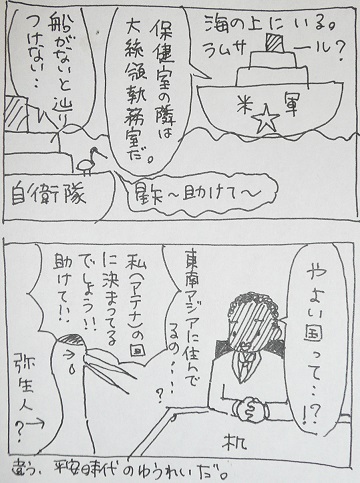 海の上にいる。
ラムサール?
保健室の隣は
大統領執務室だ。
船がないと辿り
つけない…
米軍
自衛隊
助けて〜
やよい国って…!?
東南アジアに住んで
るの・・・・?
私(アテナ)の国
に決まってる
でしょう!!
助けて!!
弥生人→
?
机
違う、平安時代のゆうれいだ。